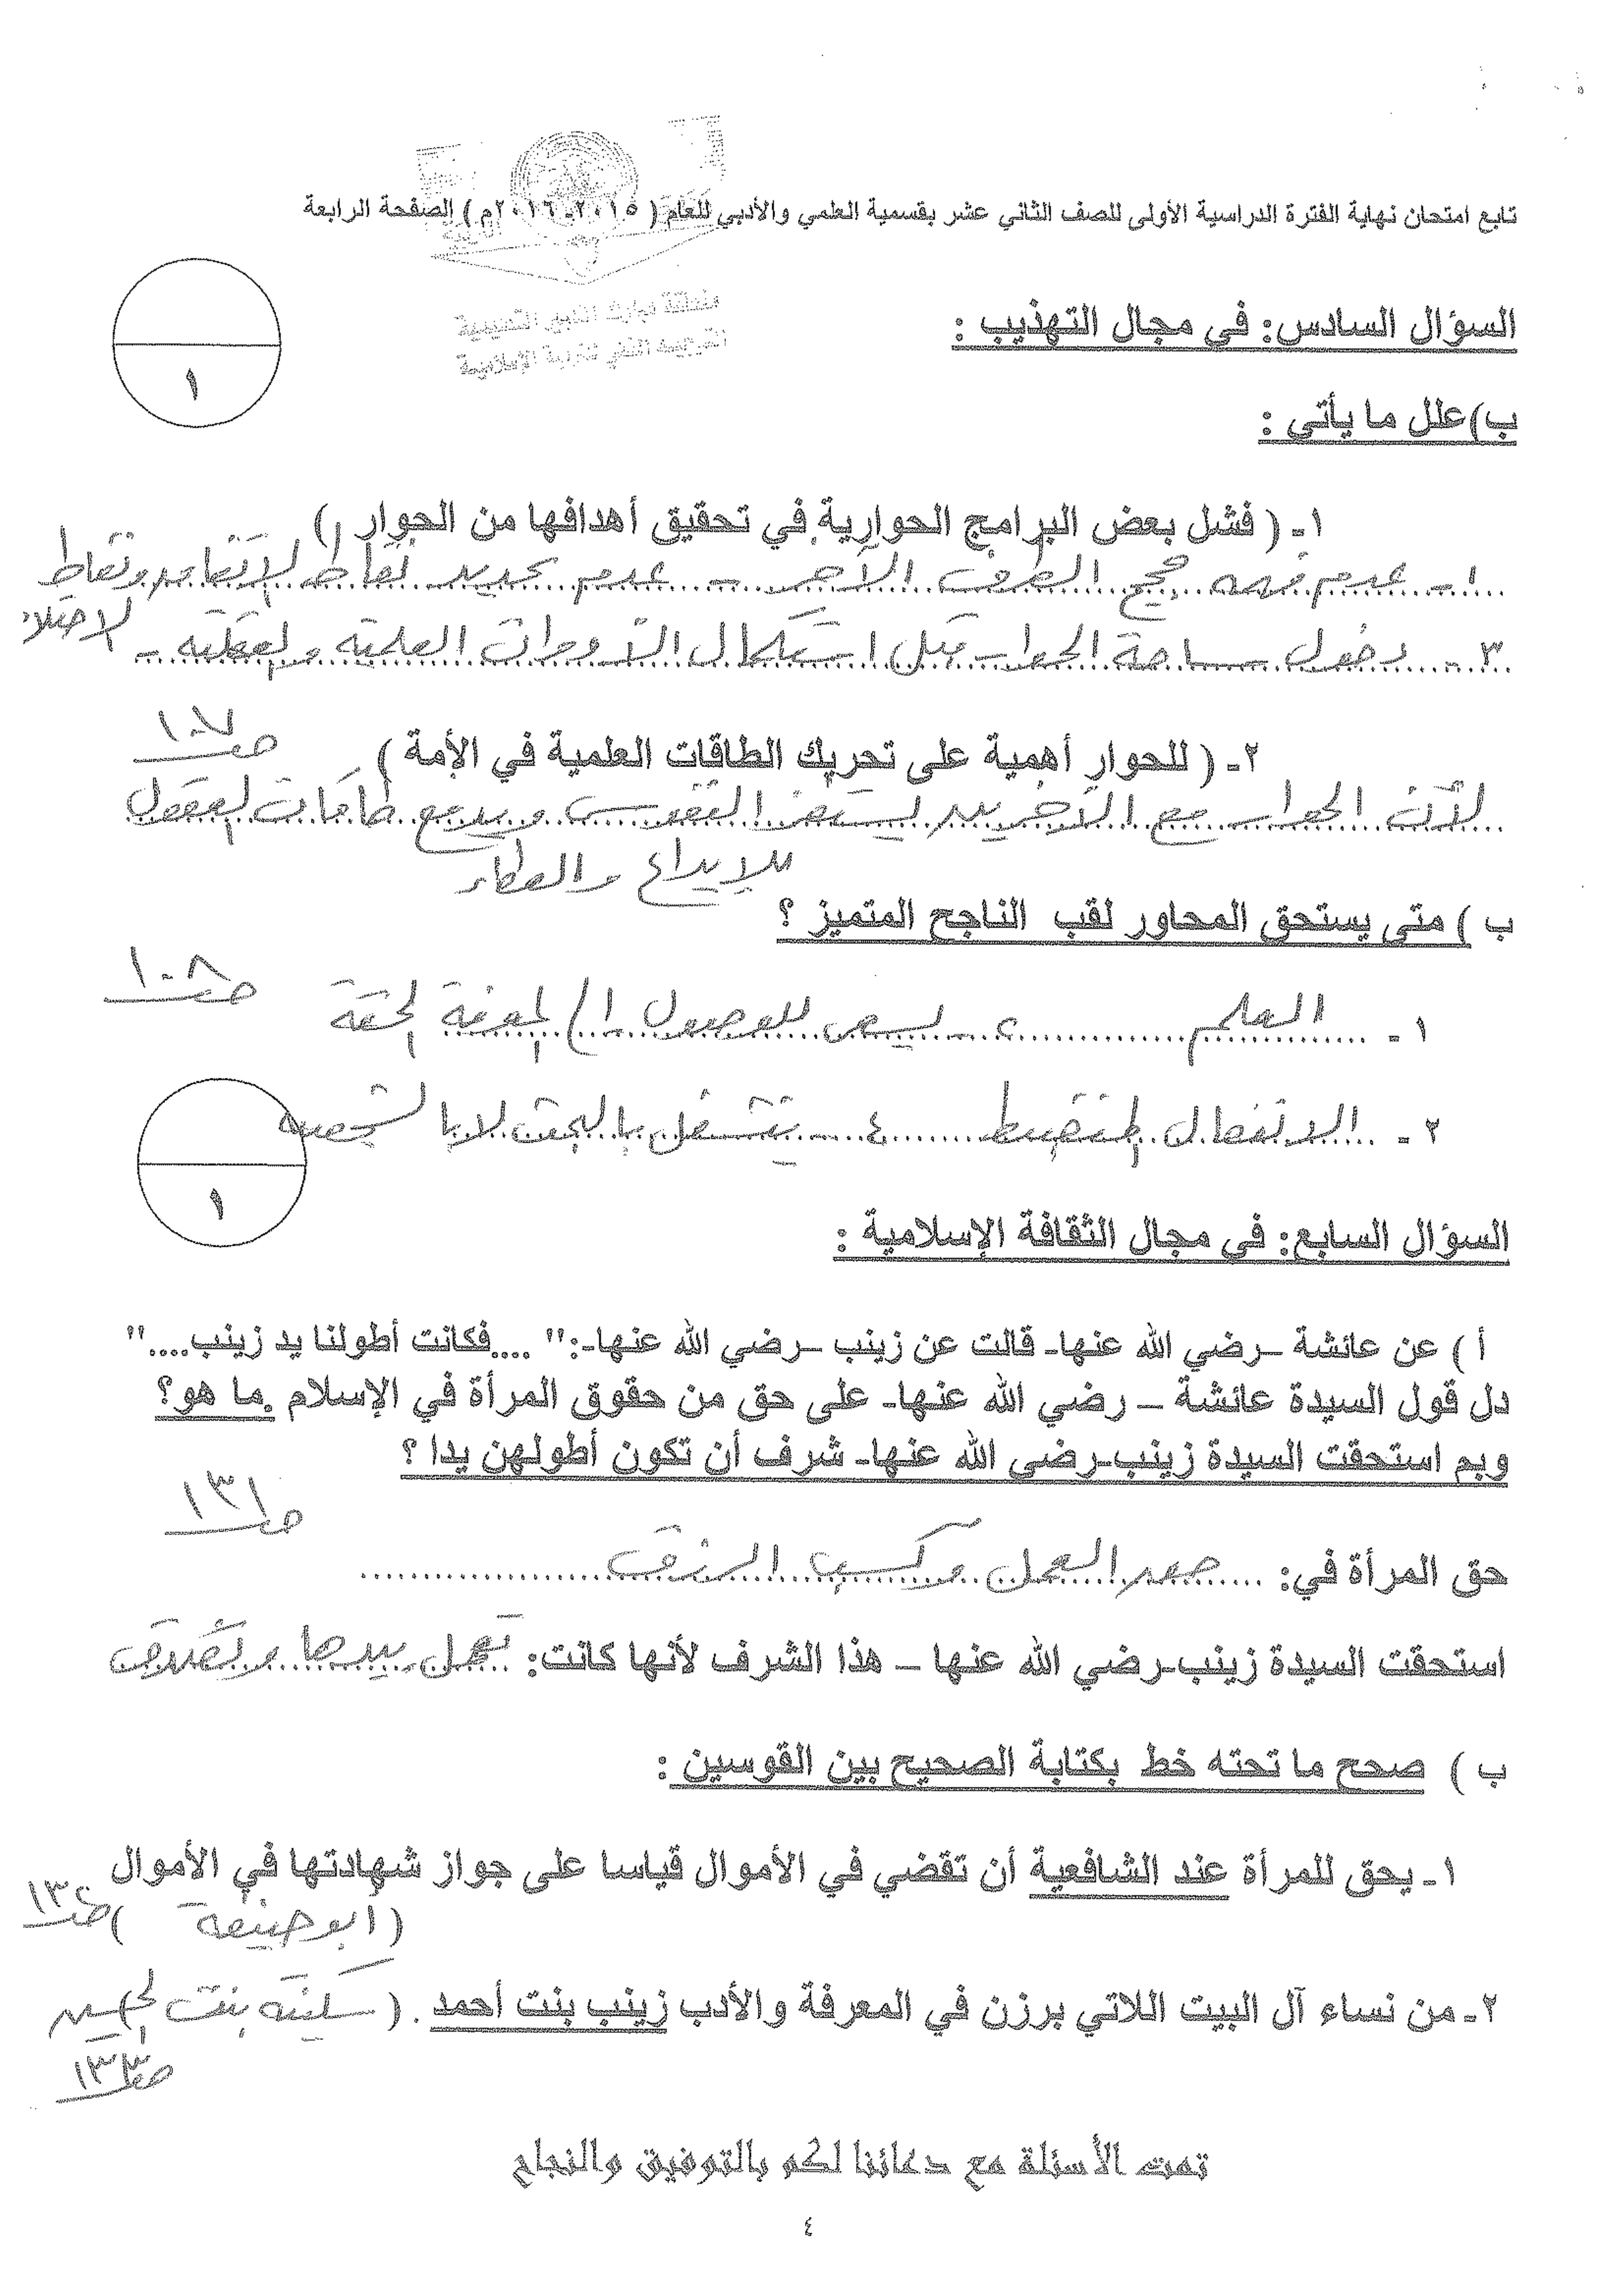 تابع امتحان نهاية الفترة الدراسية الأولى للصف الثاني عشر بقسمية العلمي والأدبي للعام ( ٢٠١٥-٢٠١٦م ) الصفحة الرابعة
منطقة مبارك الكبير التعليمية
التوجيه الفني للتربية الإسلامية
السؤال السادس: في مجال التهذيب :
١
ب) علل ما يأتي :
١- ( فشل بعض البرامج الحوارية في تحقيق أهدافها من الحوار )
١- عدم فهم حجج الطرف الآخر - عدم تحديد نقاط الاتفاق ونقاط الاختلاف
٣- دخول ساحة الحوار قبل استكمال الأدوات العلمية والعقلية -
ص ١٠٧
٢- ( للحوار أهمية على تحريك الطاقات العلمية في الأمة )
لأن الحوار مع الآخرين يستفز النفوس ويدفع طاقات العقول
للإبداع والعطاء
ب ) متى يستحق المحاور لقب الناجح المتميز ؟
ص ١٠٨
١- العلم ٣- يسعى للوصول إلى المعرفة الحقة
٢- الانفعال المنضبط ٤- ينشغل بالبحث لا بالشخصية
١
السؤال السابع: في مجال الثقافة الإسلامية :
أ ) عن عائشة –رضي الله عنها- قالت عن زينب –رضي الله عنها-:" ....فكانت أطولنا يد زينب...."
دل قول السيدة عائشة – رضي الله عنها- على حق من حقوق المرأة في الإسلام .ما هو؟
وبم استحقت السيدة زينب-رضي الله عنها- شرف أن تكون أطولهن يدا ؟
ص ١٣١
حق المرأة في: العمل وكسب الرزق
استحقت السيدة زينب-رضي الله عنها – هذا الشرف لأنها كانت: تعمل بيدها وتصدق
ب ) صحح ما تحته خط بكتابة الصحيح بين القوسين :
١- يحق للمرأة عند الشافعية أن تقضي في الأموال قياسا على جواز شهادتها في الأموال
( أبو حنيفة ) ص ١٣٢
٢- من نساء آل البيت اللاتي برزن في المعرفة والأدب زينب بنت أحمد . ( سكينة بنت الحسين )
ص ١٣٣
تمت الأسئلة مع دعائنا لكم بالتوفيق والنجاح
٤